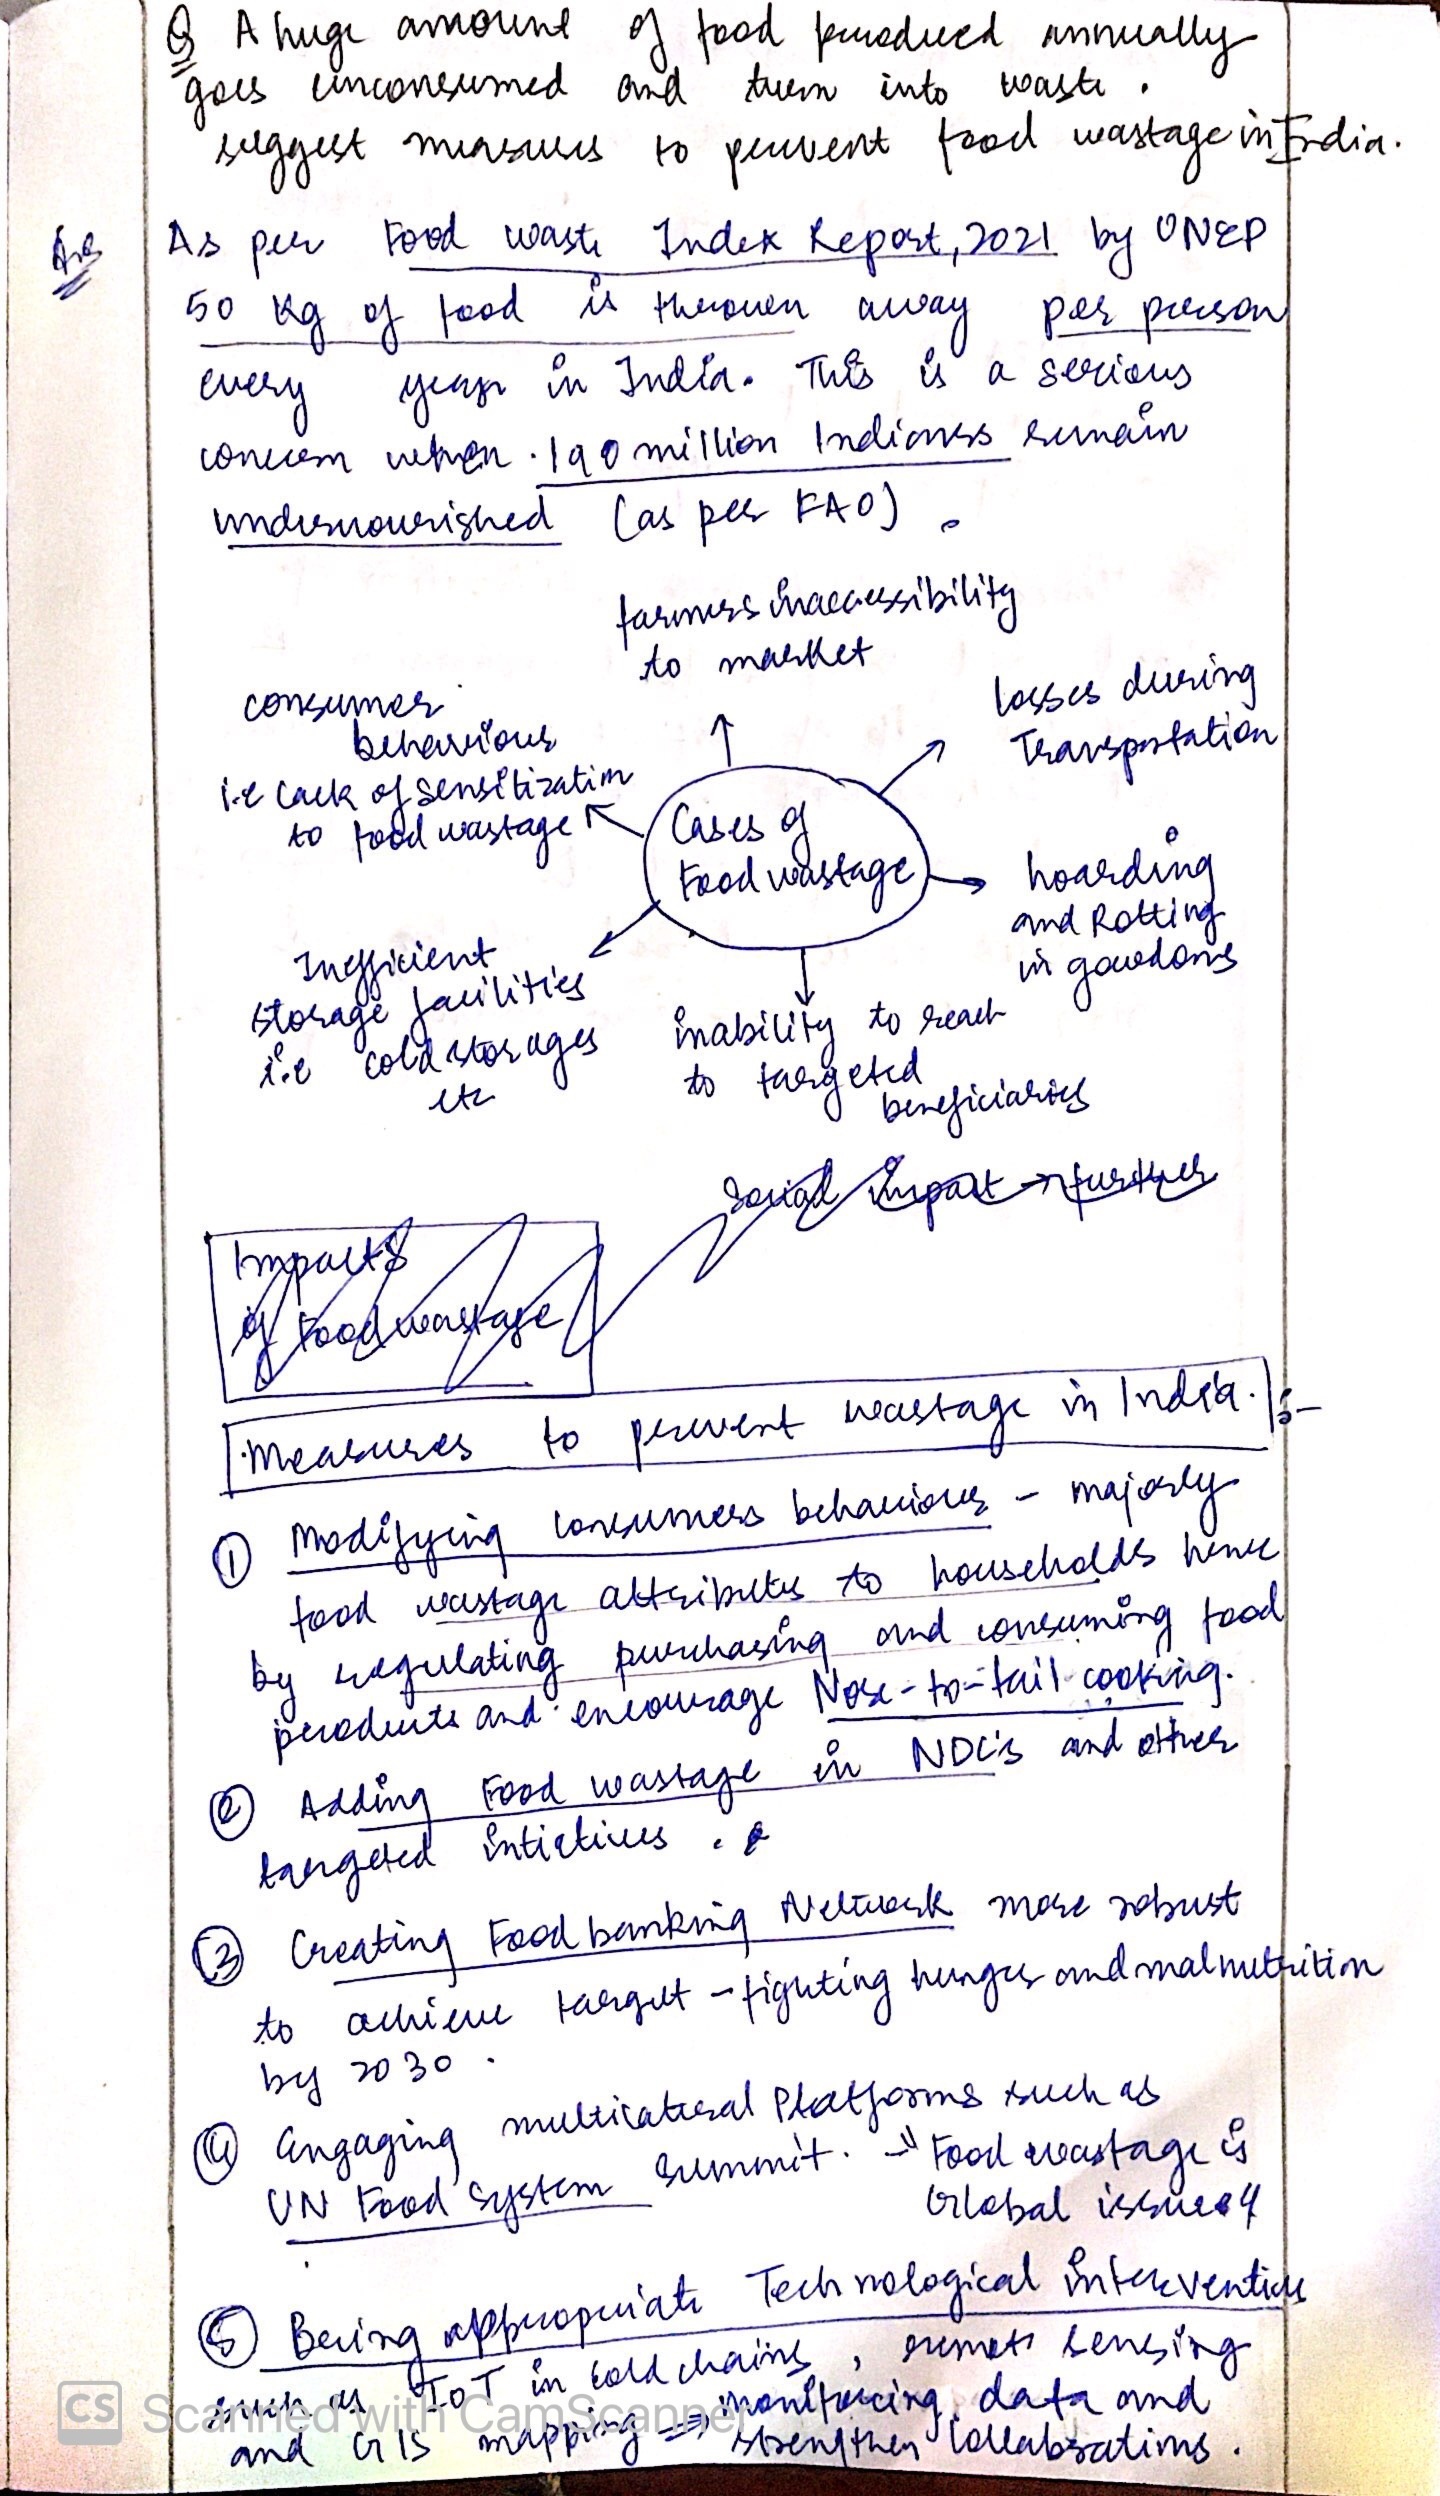 Q A huge amount of food produced annually
goes unconsumed and turn into waste.
suggest measures to prevent food wastage in India.
Ans As per Food waste Index Report, 2021 by UNEP
50 kg of food is thrown away per person
every year in India. This is a serious
concern when 190 million Indians remain
undernourished (as per FAO).
farmers inaccessibility
to market
losses during
Transportation
consumer
behaviour
i.e lack of sensitization
to food wastage
Cases of
Food wastage
hoarding
and Rotting
in gowdons
Inefficient
storage facilities
i.e cold storages
etc
inability to reach
to targeted
beneficiaries
Social impact → further
Impacts
of Food wastage
Measures to prevent wastage in India. :-
① Modifying consumers behaviour - majorly
food wastage attributes to households hence
by regulating purchasing and consuming food
products and encourage Nose-to-tail cooking.
② Adding Food wastage in NDC's and other
targeted intiatives.
③ Creating Food banking Network more robust
to achieve target - fighting hunger and malnutrition
by 2030.
④ Engaging multilateral Platforms such as
UN Food System Summit. → Food wastage is
Global issue
⑤ Bering appropriate Technological intervention
such as IoT in cold chains, remote sensing
and GIS mapping ⇒ monitoring data and
strengthen Collaborations.
CS Scanned with CamScanner